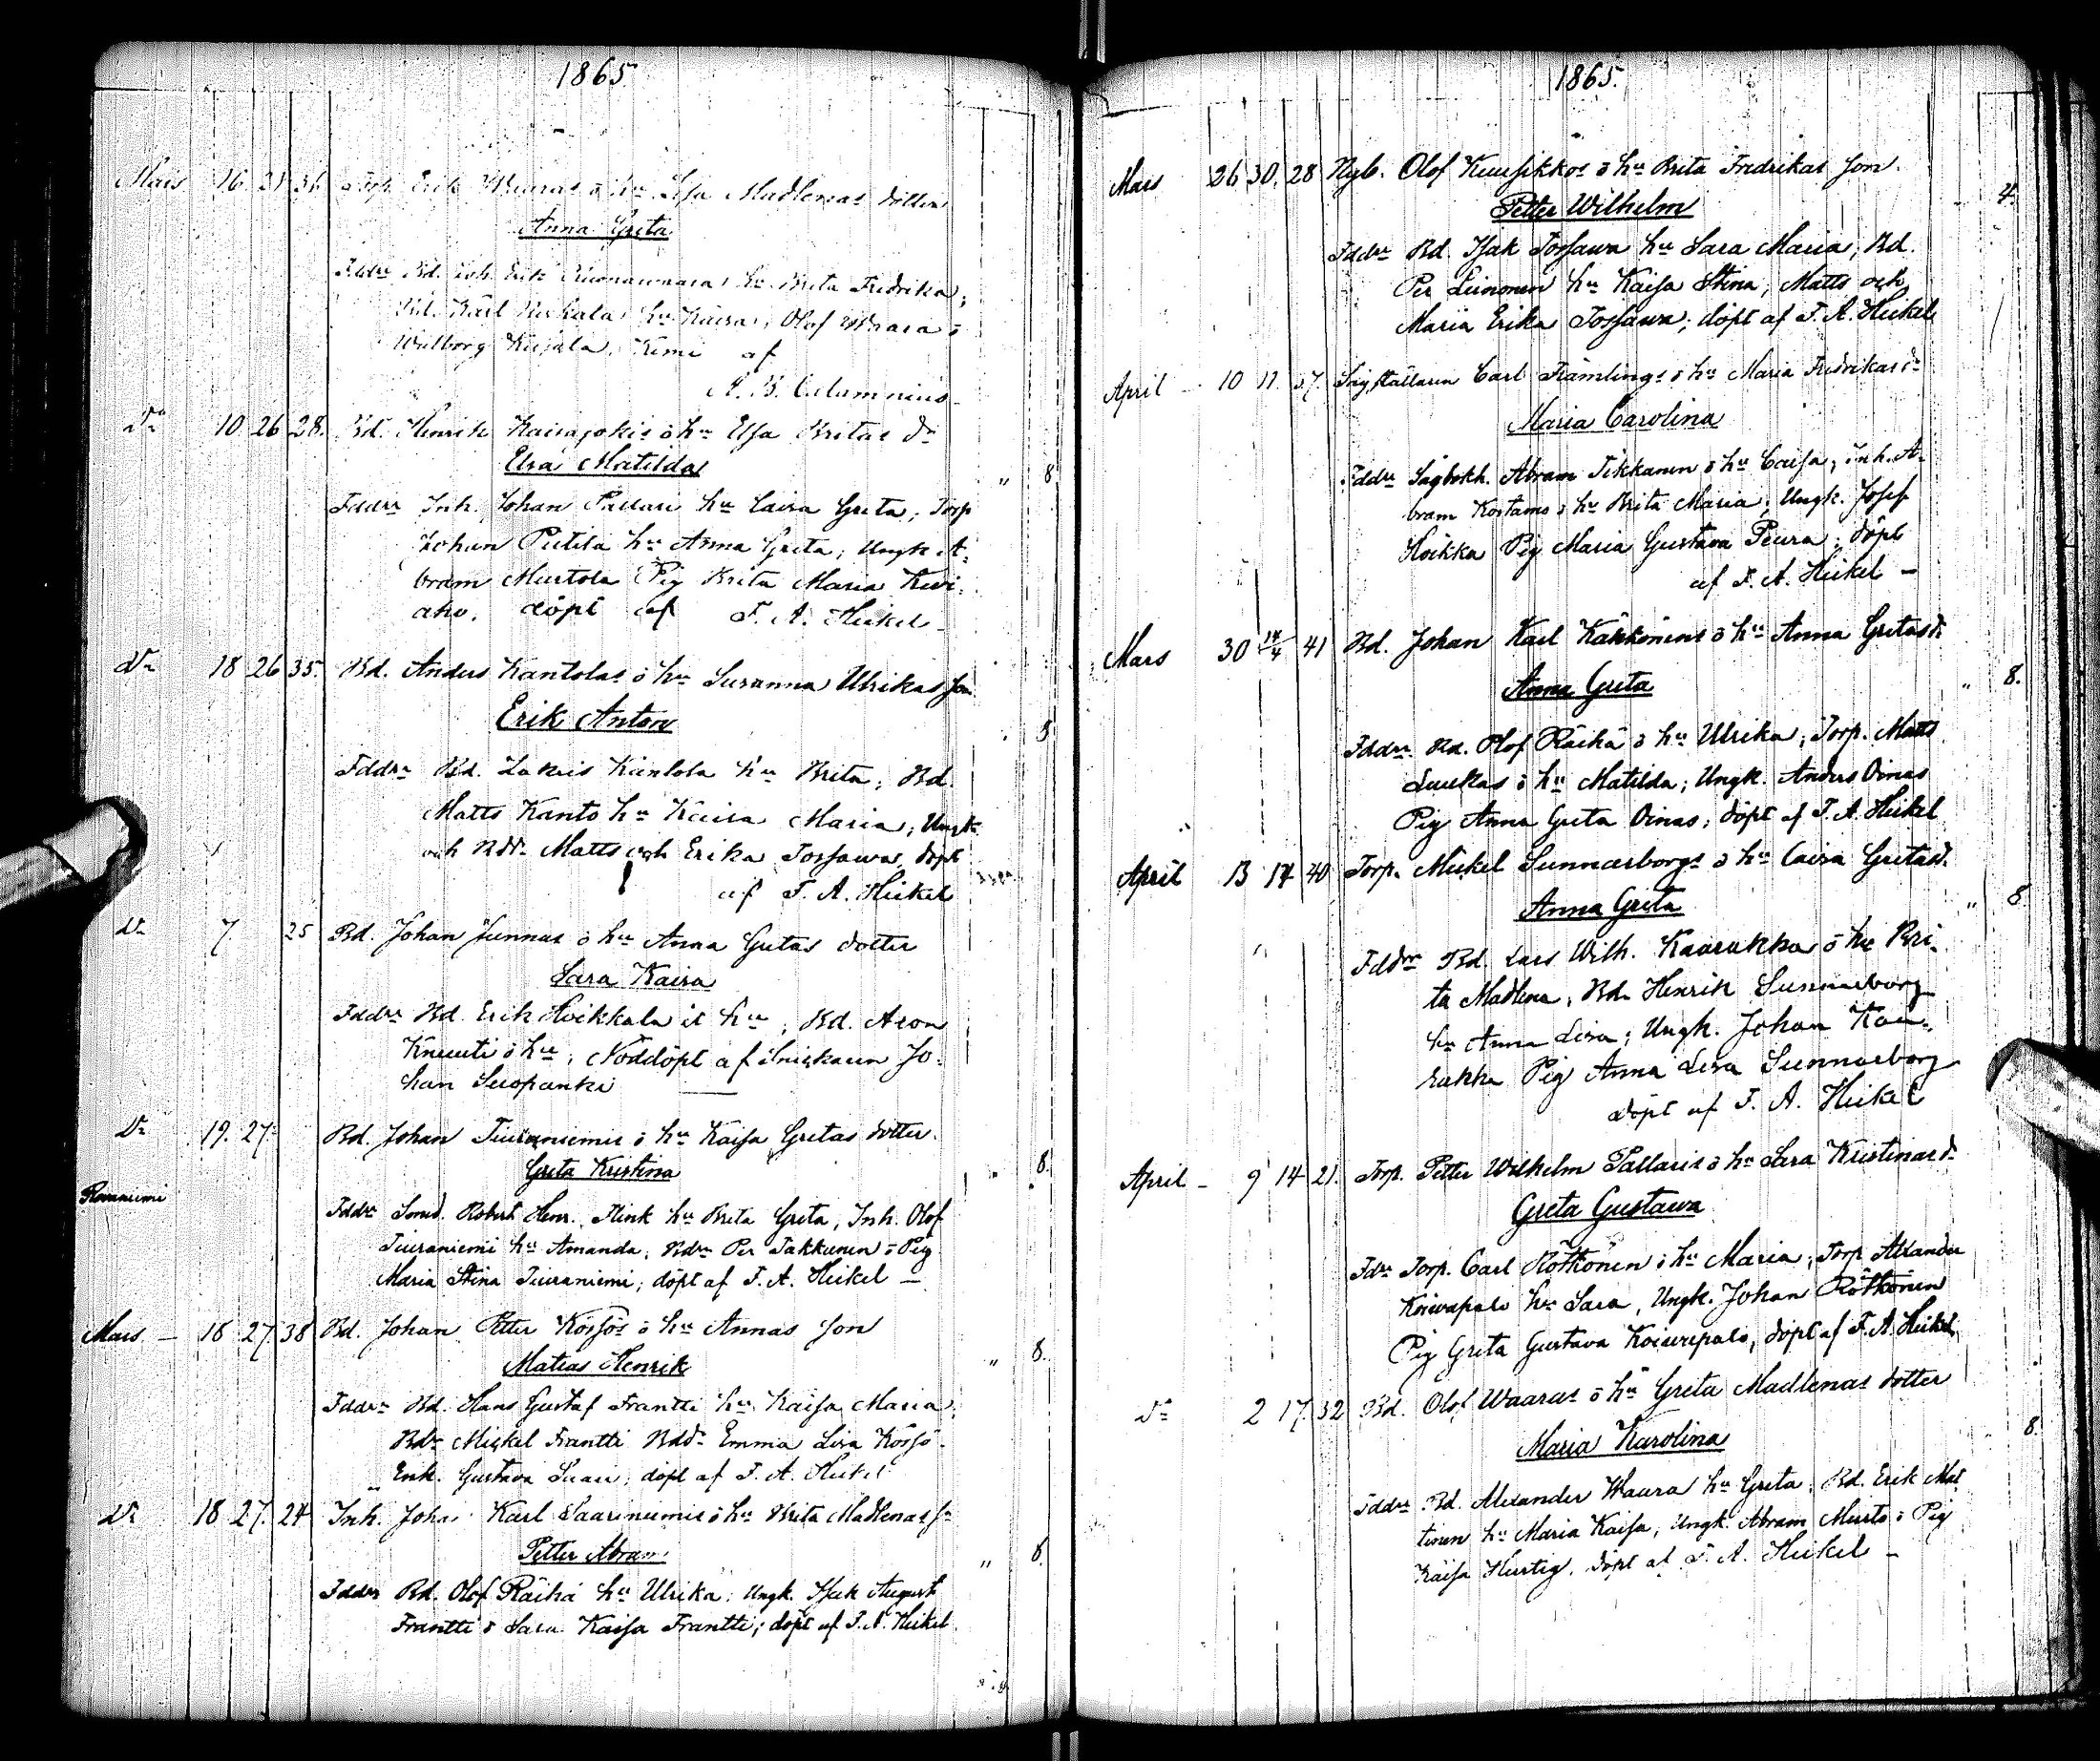 1865
Mars 16 21 31 Torp. Erik Waaras ö hu Lisa Madlenas dotter
Anna Greta
Fddrr Bd. Joh. Erik hu Brita Fredrika;
Bd. Karl hu Kaisa; Olof Waara ö
Walborg Kemi af
Calamnius
Do 10 26 28. Bd. Henrik Kairajokis ö hu Elsa Britas dr
Elsa Matilda
" 8
Fddrr Inh. Johan Pallari hu Caisa Greta; Torp
Johan Putila hu Anna Greta; Ungk. A-
bram Murtola Pig Brita Maria Kivi-
aho. döpt af F. A. Heikel
Do 18 26 35. Bd. Anders Kantolas ö hu Susanna Ulrikas son
Erik Anton
8
Fddrr Bd. Zakris Kantola hu Brita; Bd.
Matts Kanto hu Kaisa Maria; Ungk.
och Bddr Matts och Erika Tossawa, döpt
af F. A. Heikel
Do 7. 25 Bd. Johan Junnas ö hu Anna Gretas dotter
Sara Kaisa
Fddrr Bd. Erik Hoikkala ö hu; Bd. Aron
Knuuti ö hu; Nöddöpt af Inhiskaren Jo-
han Suopanki
Do 19. 27. Bd. Johan Tiuraniemis ö hu Kaisa Gretas dotter.
Greta Kristina
" 8.
Rovaniemi
Fddrr Smed. Robert Henr. Flink hu Brita Greta, Inh. Olof
Tiuraniemi hu Amanda; Bdr Per Takkunen ö Pig
Maria Stina Tiuraniemi; döpt af F. A. Heikel —
Mars — 18 27. 38 Bd. Johan Petter Körsös ö hu Annas son
Matias Henrik
" 8.
Fddrr Bd. Hans Gustaf Frantti hu Kaisa Maria,
Bdr Mickel Frantti Bddr Emma Lisa Körsö.
Enk. Gustava Suari; döpt af F. A. Heikel
Do 18 27. 24 Inh. Johan Karl Saariniemis ö hu Brita Madlenas son
Petter Abram
" 8.
Fddrr Bd. Olof Räihä hu Ulrika; Ungk. Isak August
Frantti ö Sara Kaisa Frantti; döpt af F. A. Heikel.
1865.
Mars 26 30. 28 Nyb. Olof Kuusikkos ö hu Brita Fredrikas son.
Petter Wilhelm
4.
Fddrr Bd. Isak Tossawa hu Sara Maria; Bd.
Per Leinonen hu Kaisa Stina; Matts och
Maria Erika Tossawa; döpt af F. A. Heikel
April 10 11. 37. Sågställaren Carl Främlings ö hu Maria Fredrikas dr
Maria Carolina
Fddrr Sågbokh. Abram Tikkanen ö hu Caisa; Inh. A-
bram Kostamo ö hu Brita Maria; Ungk. Josef
Hoikka Pig Maria Gustava Peura; döpt
af F. A. Heikel —
Mars 30 14/4 41 Bd. Johan Karl Kakkonens ö hu Anna Gretas dr
Anna Greta
" 8.
Fddrr. Bd. Olof Räihä ö hu Ulrika; Torp. Matts
Luukas ö hu Matilda; Ungk. Anders Oinas
Pig Anna Greta Oinas; döpt af F. A. Heikel
April 13 14 40 Torp. Mickel Sunnarborgs ö hu Caisa Gretas d.
Anna Greta
" 8
Fddrr Bd. Lars Wilh. Kaarakka ö hu Bri-
ta Madlena, Bd. Henrik Sunnarborg
hu Anna Lisa; Ungk. Johan Kaa-
rakka Pig Anna Lisa Sunnarborg
döpt af F. A. Heikel
April — 9 14 21. Torp. Petter Wilhelm Pallaris ö hu Sara Kristinas dr
Greta Gustava
Fdr Torp. Carl Rötkönen ö hu Maria; Torp Alexander
Koivapalo hu Sara, Ungk. Johan Rötkönen
Pig Greta Gustava Koivupalo, döpt af F. A. Heikel,
Do 2 17. 32 Bd. Olof Waaras ö hu Greta Madlenas dotter
Maria Karolina
8.
Fddrr Bd. Alexander Waara hu Greta; Bd. Erik Mat-
tinen hu Maria Kaisa; Ungk. Abram Murto ö Pig
Kaisa Hurtig, döpt af F. A. Heikel —